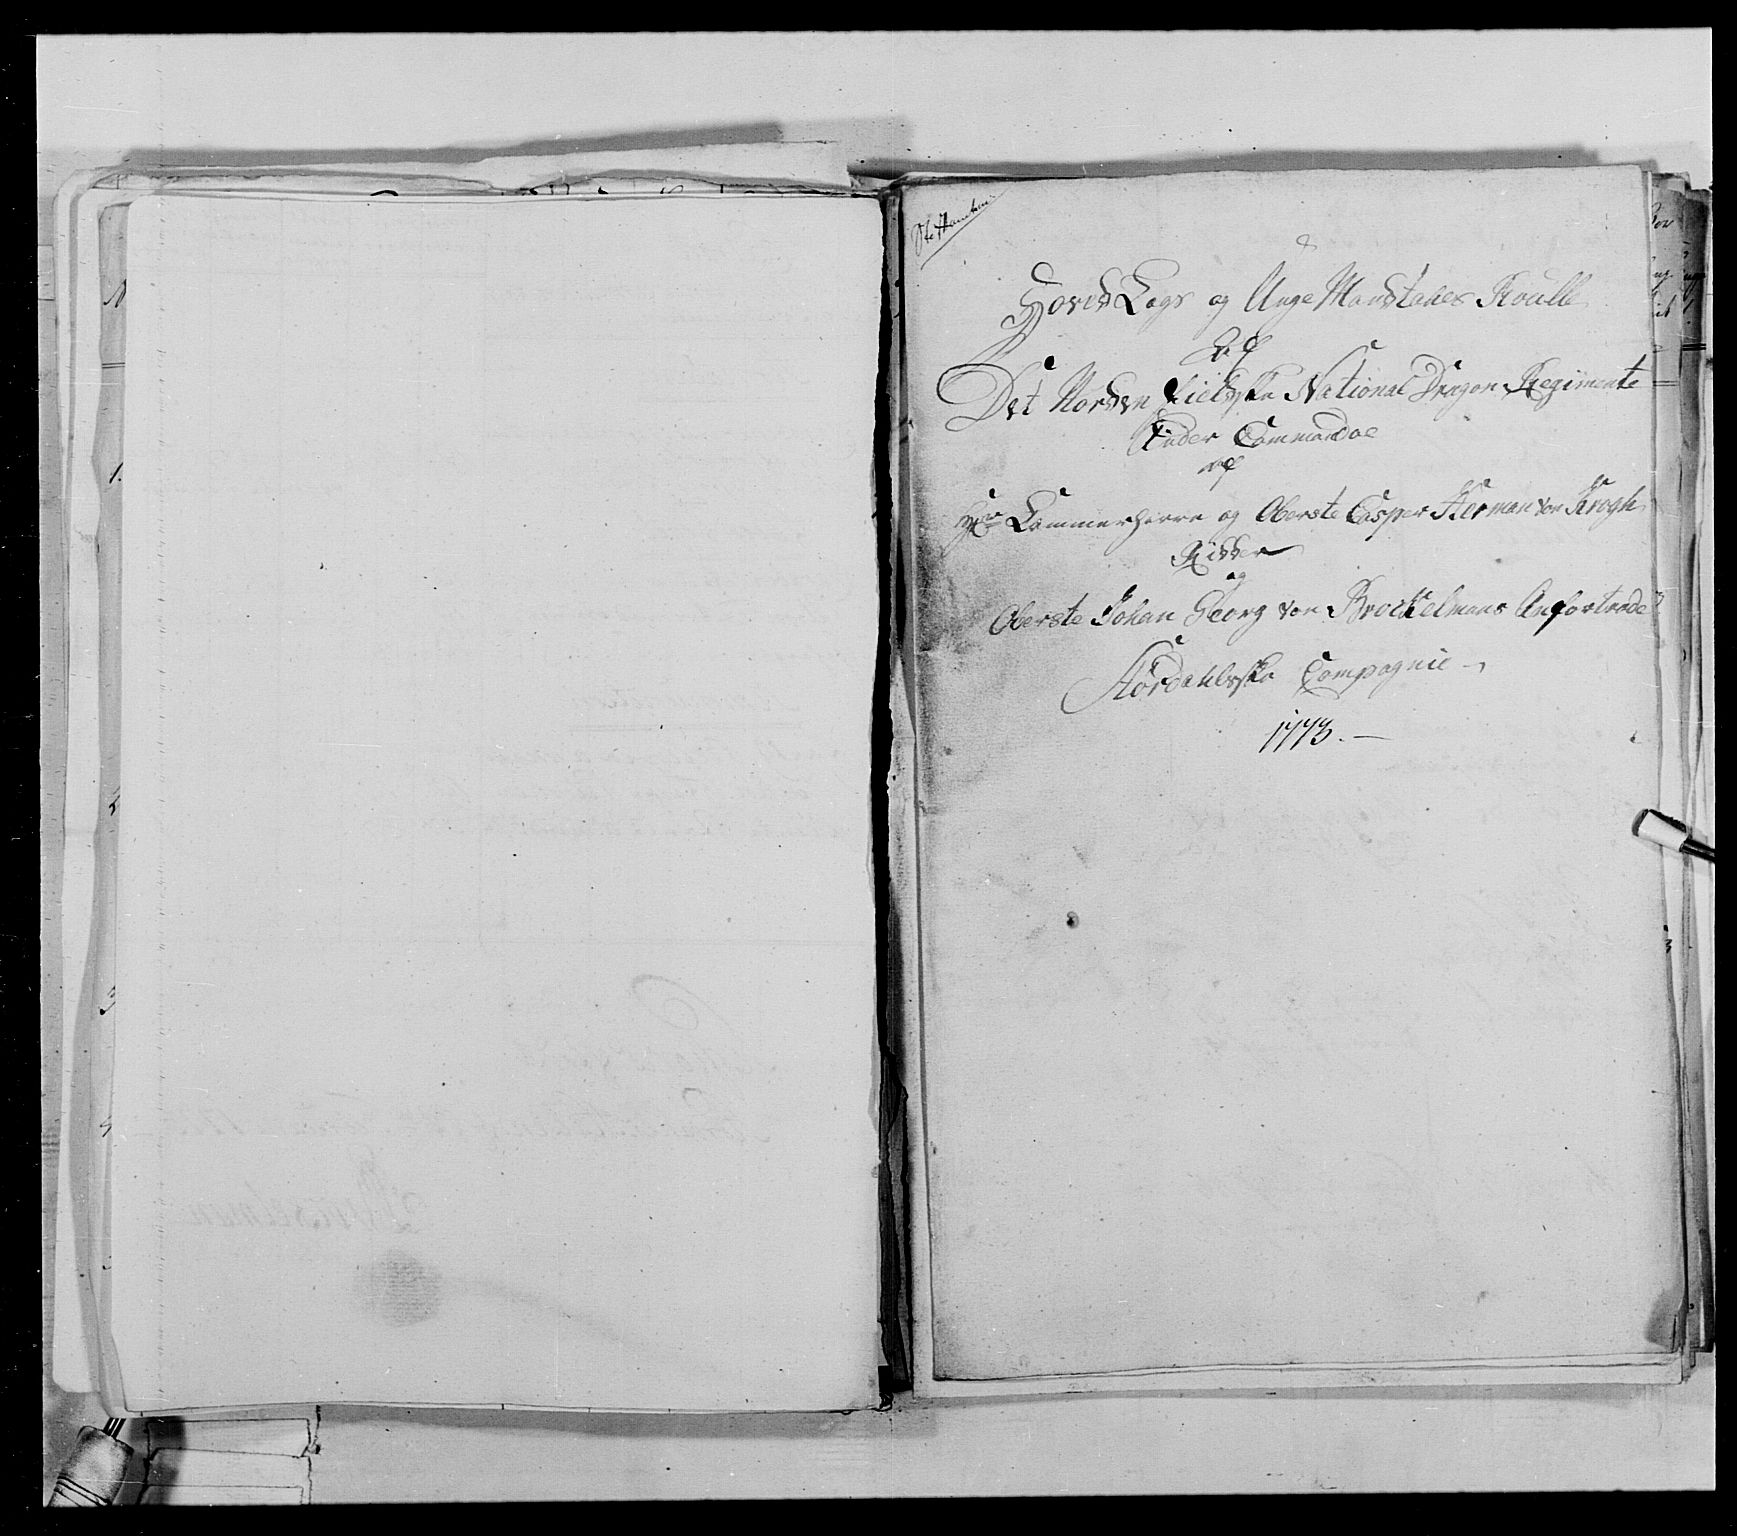 Hoved Lægs og Unge Mandskabes Roulle
Af
Det Norden fieldske National Dragon Regimente
Under Commandoe
af
Hr Kammerherre og Oberste Casper Herman von Krogh
Ridder
og
Oberste Johan Georg von Brockelmans Anfortrode
Størdahlske Compagnie
1773.